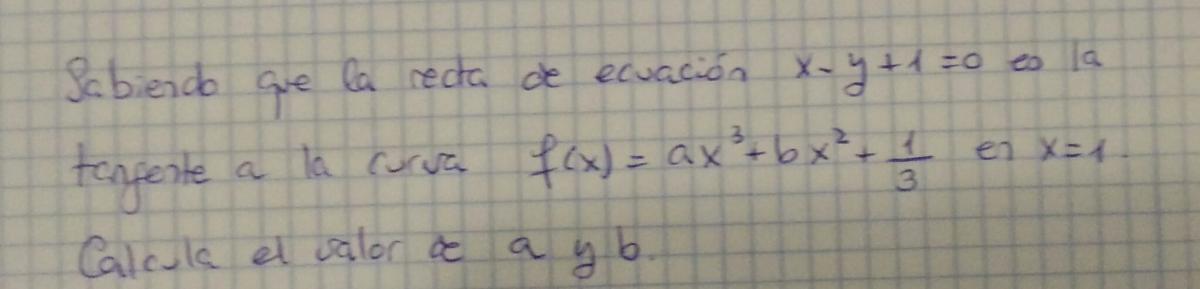 Sabiendo que la recta de ecuación x-y+1=0 es la
tangente a la curva f(x) = ax³+bx²+1/3 en x=1.
Calcula el valor de a y b.